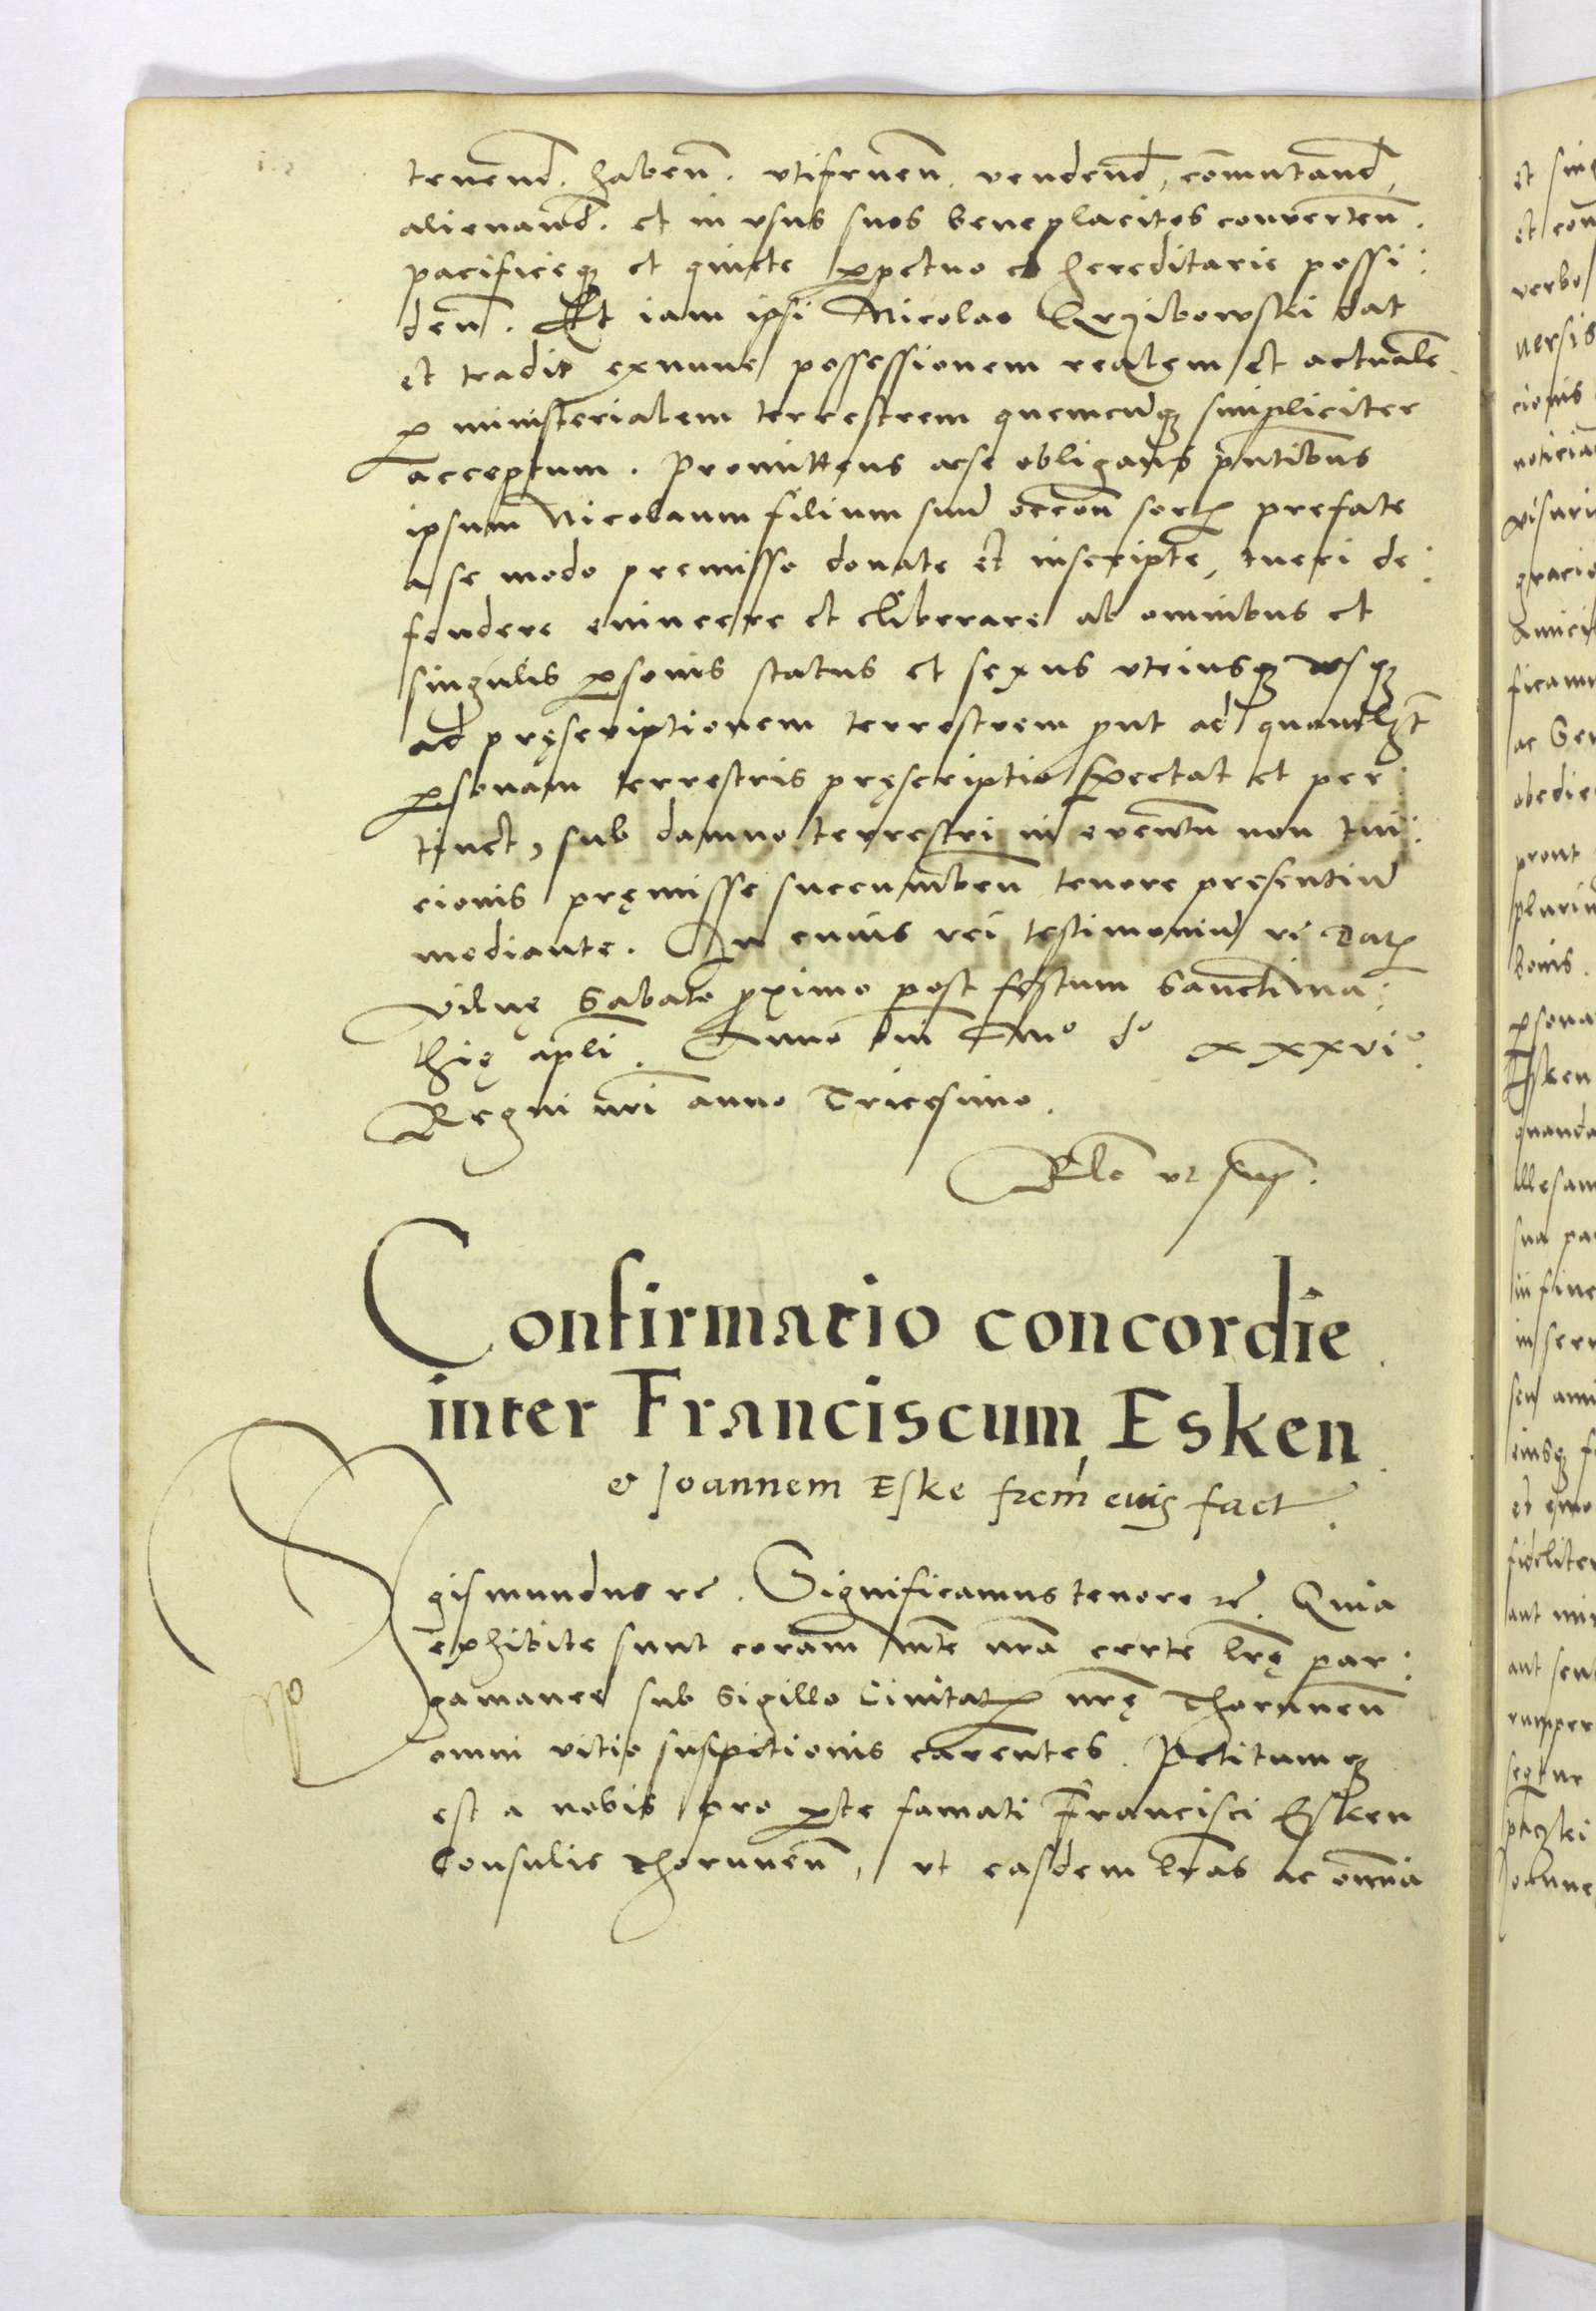 tenend. haben̄. utifruen̄. vendend, com̄utand,
alienand. et in usus suos beneplacitos converten̄.
pacificeqʒ et quiete ꝑpetuo et hereditarie possi:
den̄. Et iam ipsi Nicolao Grzibowski dat
et tradit exnunc possessionem realem et actualē
ꝑ ministerialem terrestrem quemcūqʒ simpliciter
acceptum. Promittens ac se obligans pn̄tibus
ipsum Nicolaum filium suū occōn sortꝭ prefate
a se modo premisso donate et inscripte, tueri de:
fendere evincere et eliberare ab omnibus et
singulis ꝑsonis status et sexus utriusqʒ usqʒ
ad pręscriptionem terrestrem ꝓut ad quamlꝫt
ꝑsonam terrestris pręscriptio spectat et per:
tinet, sub damno terrestri in eventu non tui:
cionis pręmisse succumben̄ tenore presentiū
mediante. In cuius rei testimoniū rc̄ Datꝭ
Vilnę Sabato ꝓximo post festum Sancti Ma:
thię apl̄i. Anno Dn̄i Mᵒ dᵒ xxxviᵒ.
Regni nr̄i anno Tricesimo.
Rlō ut supꝭ.
Confirmatio concordie
inter Franciscum Esken
& Joannem Eske frem̄ eius fact.
Sigismundus rc̄. Significamus tenore rc̄. Quia
exhibite sunt coram Mte nr̄a certe lr̄ę par:
gamanee sub Sigillo Civitatꝭ nr̄ę Thorunen̄
omni vitio suspitionis carentes. Petitumqʒ
est a nobis pro ꝑte famati Francisci Esken
Consulis Thorunen̄, ut easdem lr̄as ac om̄ia